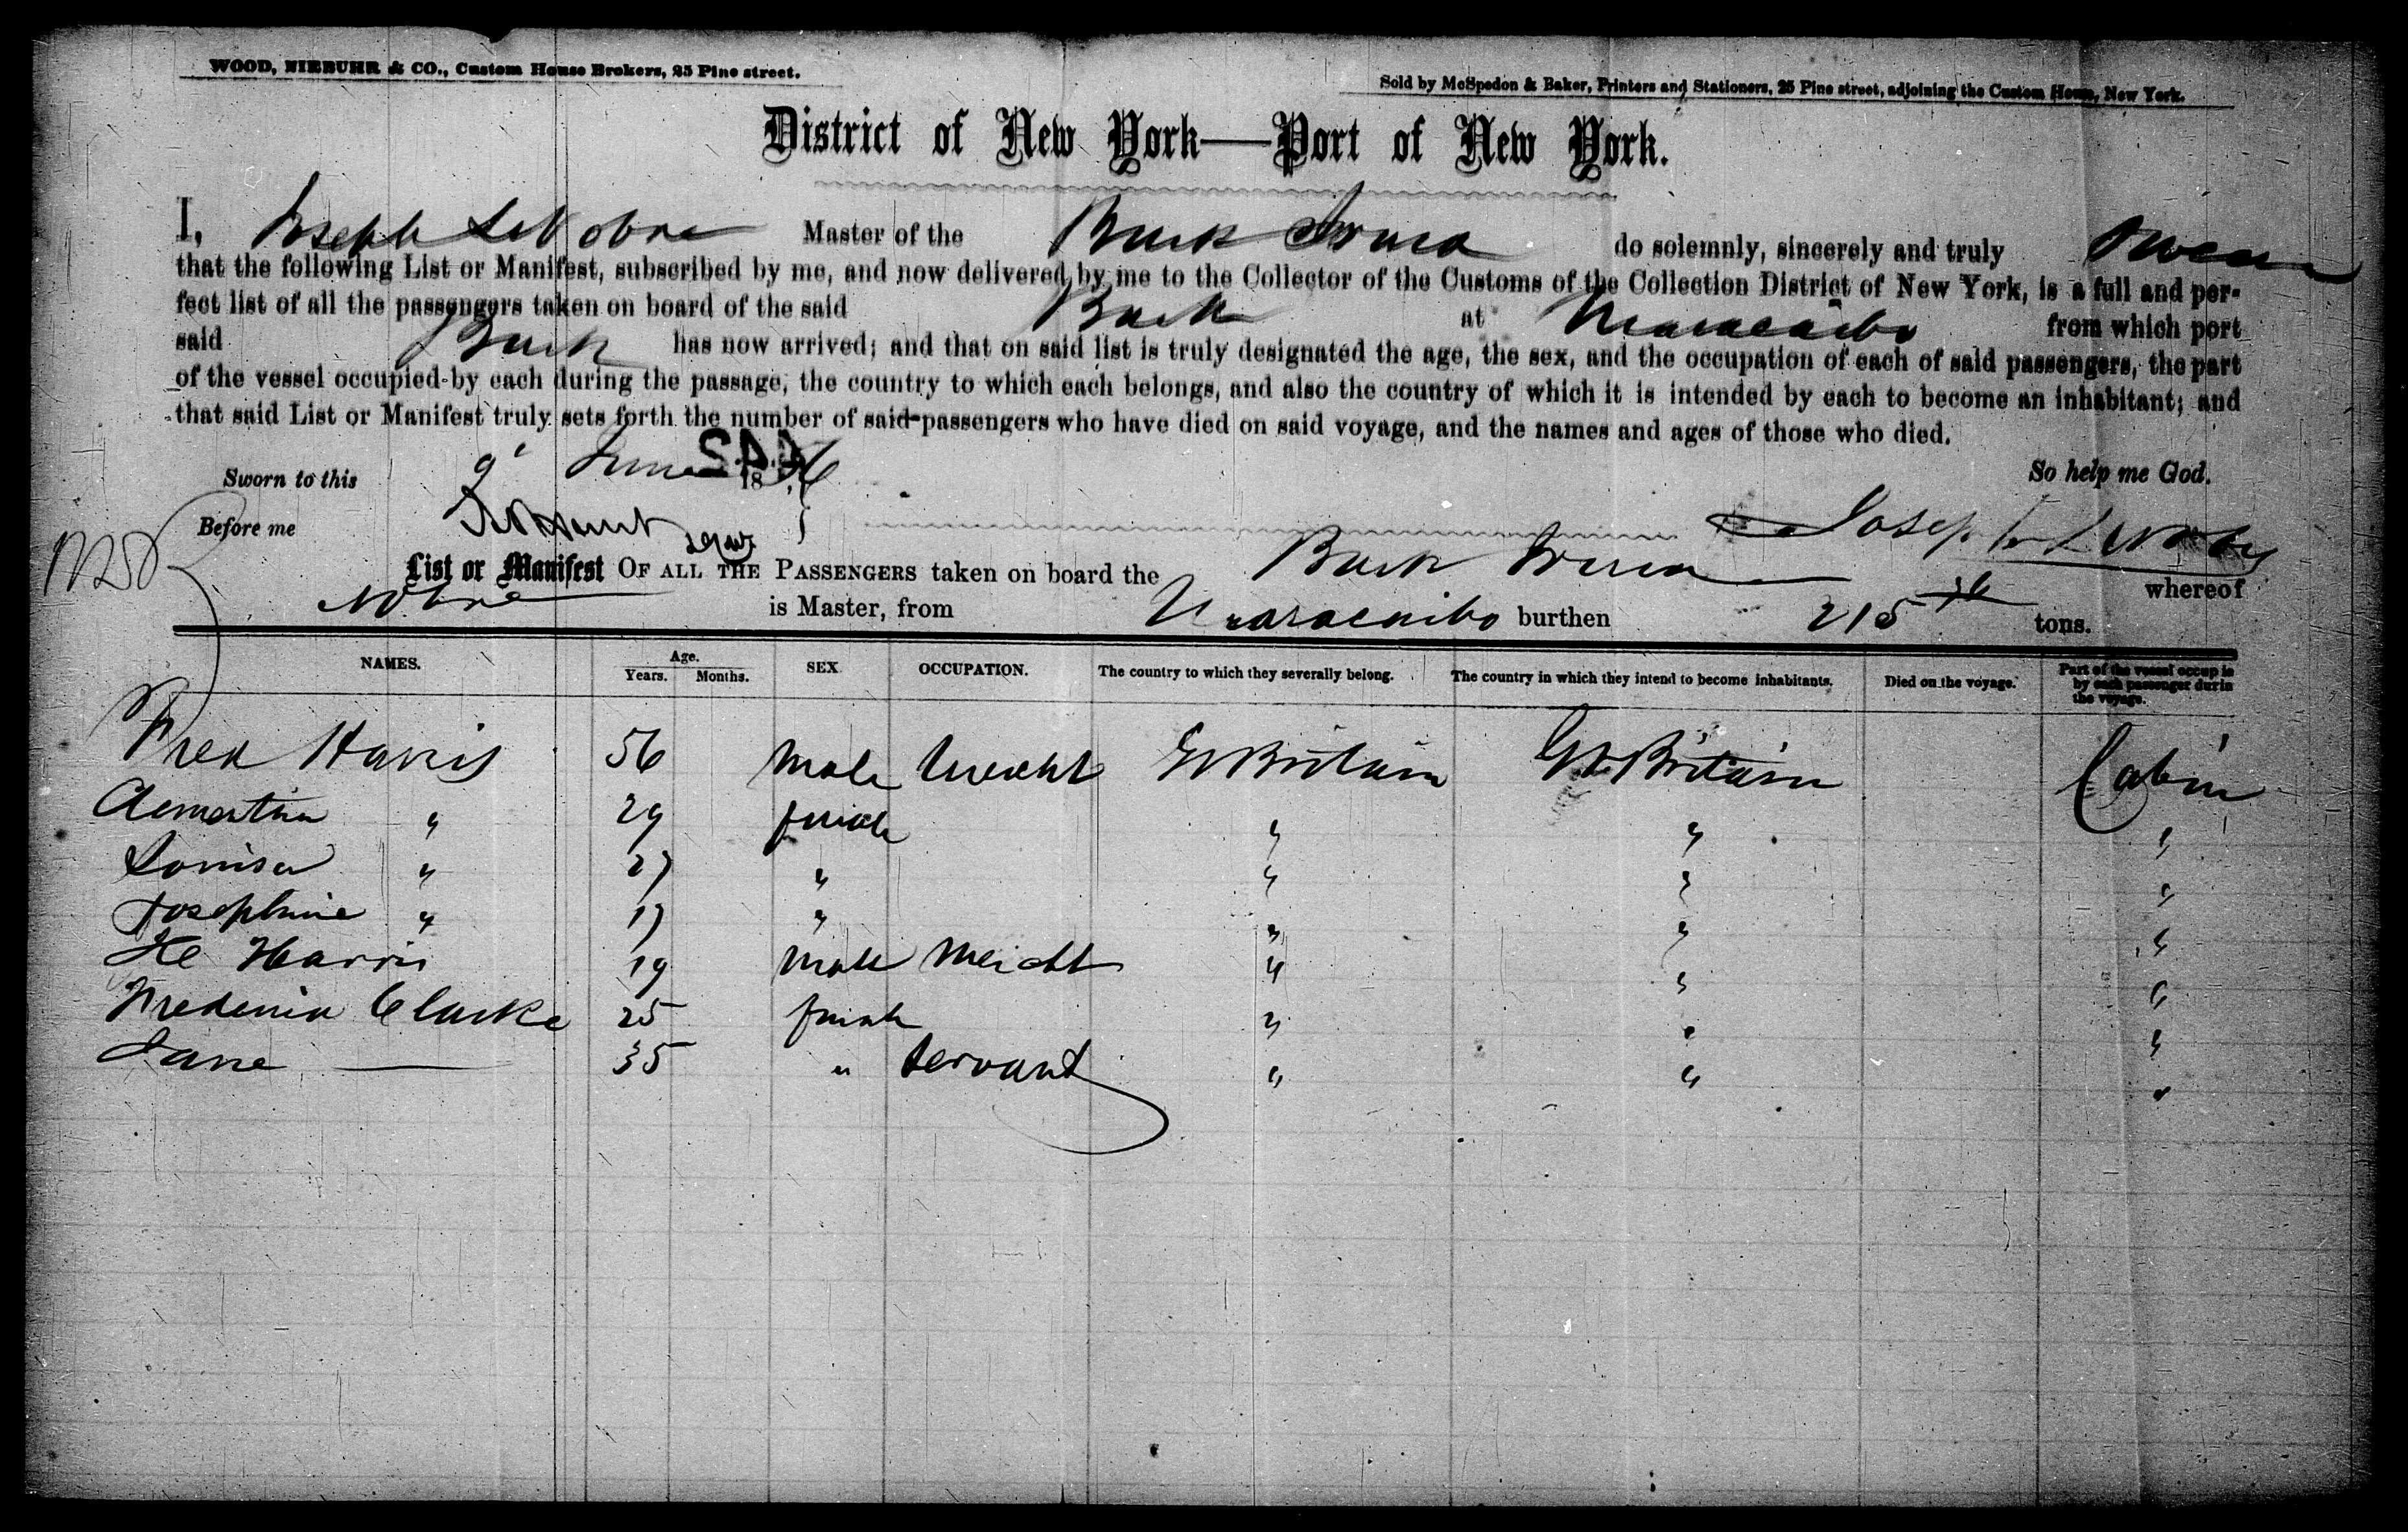 WOOD, NIEBUHR & CO., Custom House Brokers, 25 Pine street.
Sold by McSpedon & Baker, Printers and Stationers, 25 Pine street, adjoining the Custom House, New York.
District of New York—Port of New York.
I, Joseph Master of the Bark do solemnly, sincerely and truly swear
that the following List or Manifest, subscribed by me, and now delivered by me to the Collector of the Customs of the Collection District of New York, is a full and per-
fect list of all the passengers taken on board of the said Bark at Maracaibo from which port
said Bark has now arrived; and that on said list is truly designated the age, the sex, and the occupation of each of said passengers, the part
of the vessel occupied by each during the passage, the country to which each belongs, and also the country of which it is intended by each to become an inhabitant; and
that said List or Manifest truly sets forth the number of said passengers who have died on said voyage, and the names and ages of those who died.
Sworn to this 9 June 18 So help me God.
Before me Joseph
List or Manifest OF ALL THE PASSENGERS taken on board the Bark whereof
is Master, from Maracaibo burthen 215 tons.
NAMES. Age. Years. Months. SEX OCCUPATION. The country to which they severally belong. The country in which they intend to become inhabitants. Died on the voyage. Part of the vessel occup is by each passenger durin the voyage.
Fred Harris 56 male Gt Britain Gt Britain Cabin
" 29 female " " "
Louisa " 27 " " " "
Josephine " 17 " " " "
Harris 19 male " " "
Clarke 25 female " " "
Jane — 35 " Servant " " "